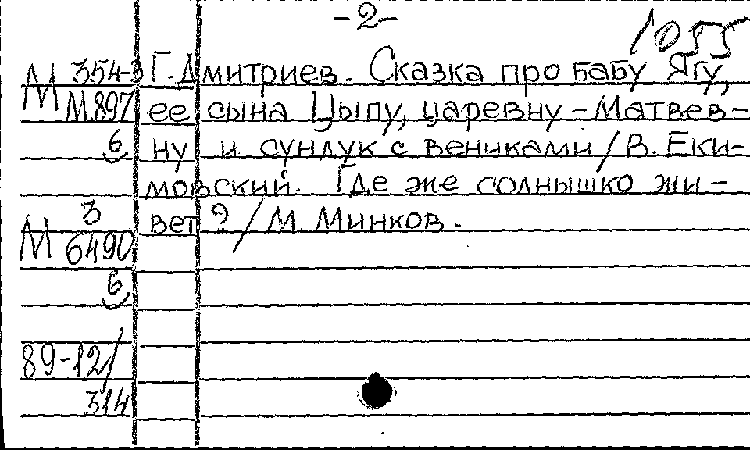 -2-
1055
М 354-3 Г. Дмитриев. Сказка про бабу Ягу,
М М897 ее сына Цыпу, царевну-Матвев-
б ну и сундук с вениками / В. Еки-
мовский. Где же солнышко жи-
3 вет? / М. Минков.
М 6490
б
89-12/
314